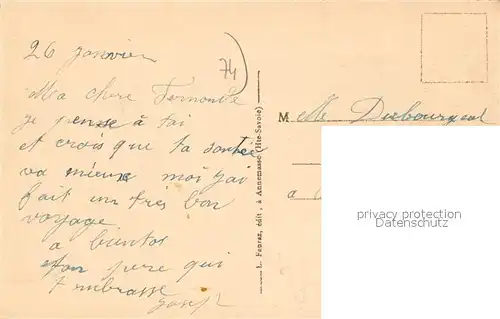 26 janvier
74
Ma chere Fernande
je pense à toi
et crois que ta santée
va mieux moi jai
fait un très bon
voyage
a bientot
ton pere qui
t'embrasse
Joseph
L. Favraz, édit. - à Annemasse (Hte-Savoie)
Melle Dubourgeal
a
privacy protection
Datenschutz